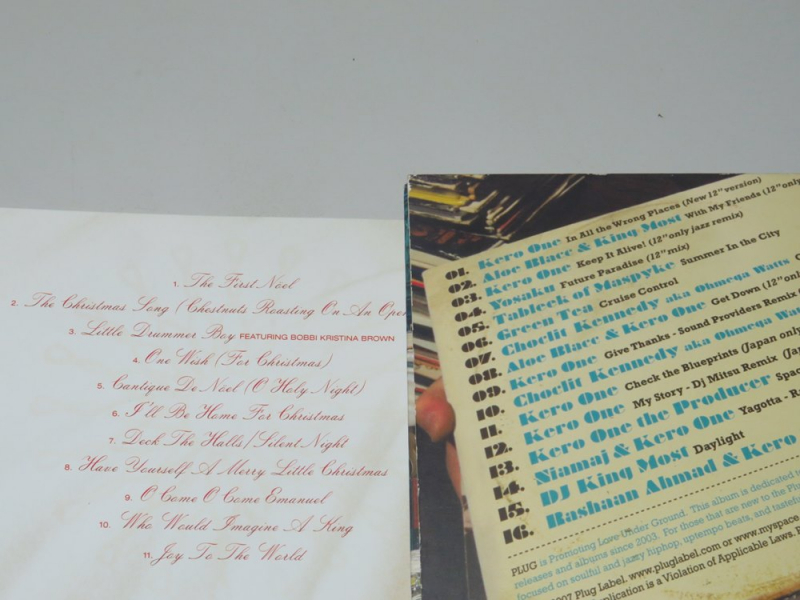 1. The First Noel
2. The Christmas Song (Chestnuts Roasting On An Open
3. Little Drummer Boy FEATURING BOBBI KRISTINA BROWN
4. One Wish (For Christmas)
5. Cantique De Noel (O Holy Night)
6. I'll Be Home For Christmas
7. Deck The Halls/Silent Night
8. Have Yourself A Merry Little Christmas
9. O Come O Come Emanuel
10. Who Would Imagine A King
11. Joy To The World
01. Kero One In All the Wrong Places (New 12" version)
02. Aloe Blacc & King Most With My Friends (12" only
03. Kero One Keep It Alive! (12" only jazz remix)
04. Yosaku Future Paradise (12" mix)
05. Tableek of Maspyke Summer In the City
06. Green Tea Cruise Control
07. Choclit Kennedy aka Ohmega Watts
08. Aloe Blacc & Kero One Get Down (12" only
09. Kero One Give Thanks - Sound Providers Remix
10. Choclit Kennedy aka Ohmega Watts
11. Kero One Check the Blueprints (Japan only
12. Kero One My Story - DJ Mitsu Remix
13. Kero One the Producer
14. Niamaj & Kero One Yagotta
15. DJ King Most Daylight
16. Rashaan Ahmad & Kero
PLUG is Promoting Love Under Ground. This album is dedicated
releases and albums since 2003. For those that are new to the
focused on soulful and jazzy hiphop, uptempo beats, and
2007 Plug Label. www.pluglabel.com or www.myspace
is a Violation of Applicable Laws.